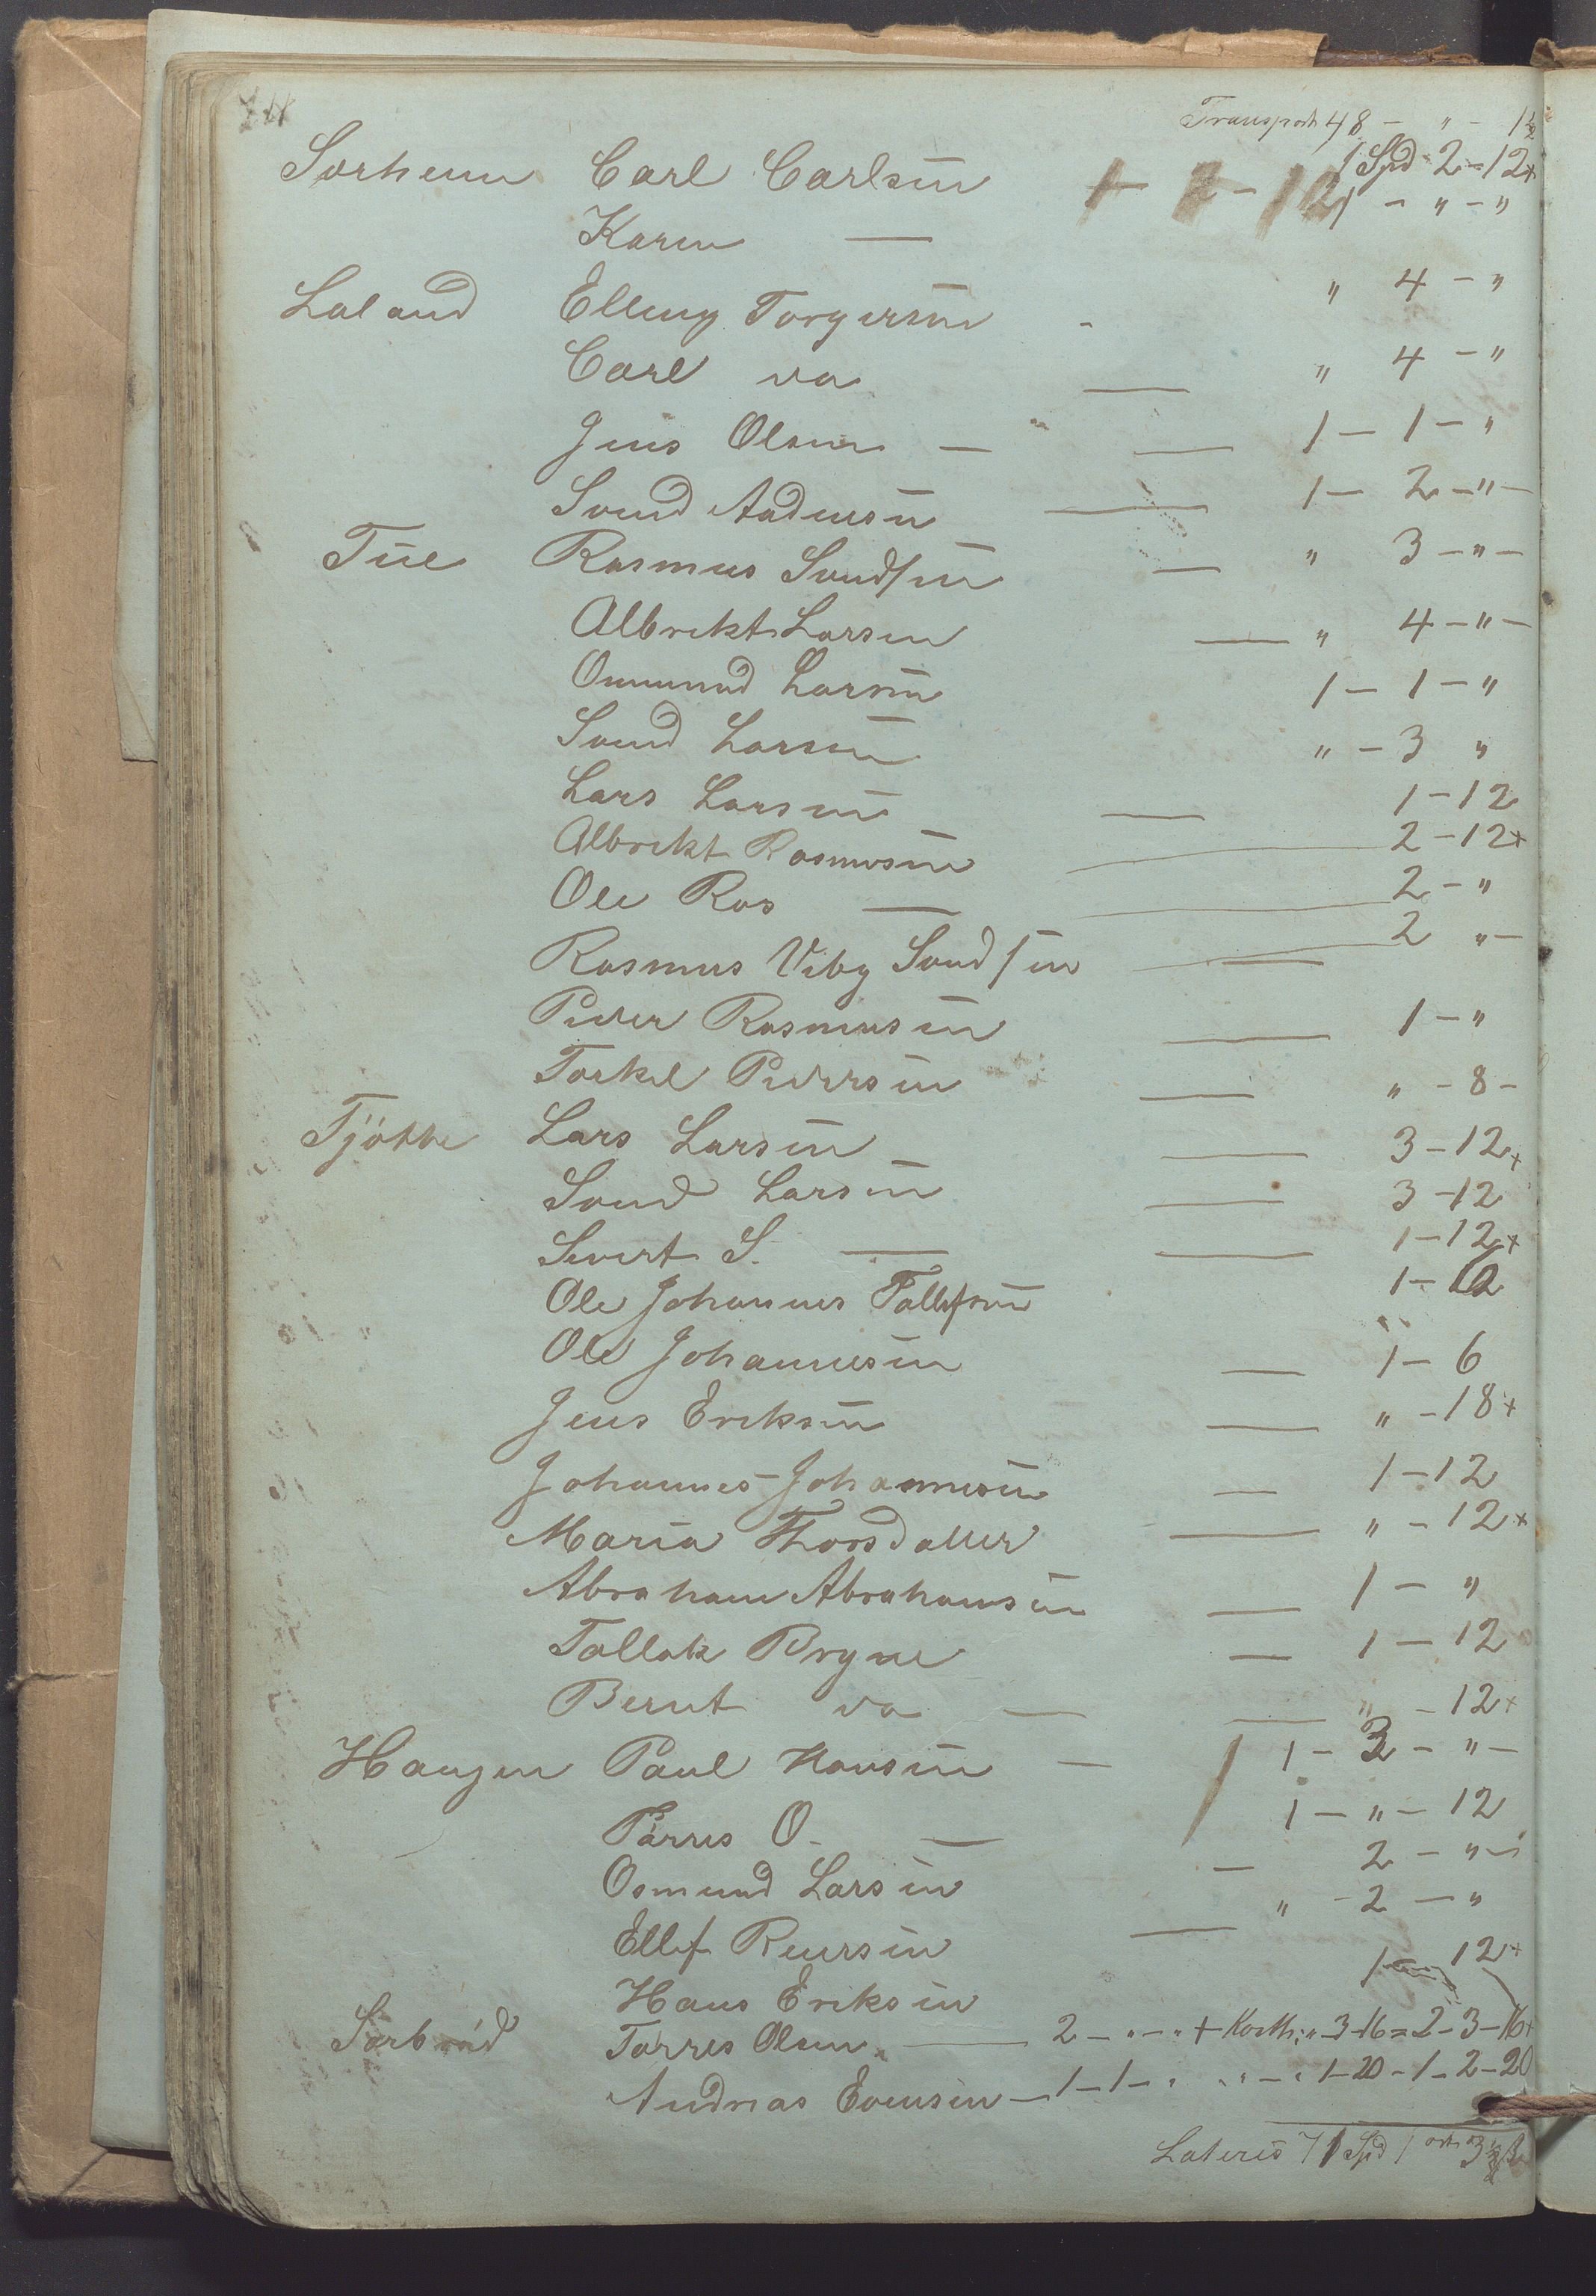 Transport 48 - " - 1½
Sorheim Carl Carlsen 1 - 2 - 12 1 Spd 2 - 12+
Karen — 1 - " - "
Laland Elling Torgersen - " 4 - "
Carl do — " 4 - "
Jens Olsen — — 1 - 1 - "
Svend Aadnesen — 1 - 2 - " -
Tue Rasmus Svendsen — " 3 - " -
Albrekt Larsen — " 4 - " -
Ommund Larsen 1 - 1 - "
Svend Larsen " - 3 "
Lars Larsen — 1 - 12
Albrekt Rasmusen — 2 - 12+
Ole Ras — — 2 - "
Rasmus Viby Svendsen — 2 " -
Peder Rasmusen — 1 - "
Torkel Pedersen — " - 8 -
Tjötte Lars Larsen — 3 - 12+
Svend Larsen — 3 - 12
Sivert S. — — 1 - 12+
Ole Johannes Tollefsen 1 - 12
Ole Johannesen — 1 - 6
Jens Eriksen — " - 18+
Johannes Johannesen — 1 - 12
Maria Thorsdatter — " - 12+
Abraham Abrahamsen — 1 - "
Tollak Bryne — 1 - 12
Bernt do — — " - 12+
Haugen Paul Hansen — 1 - 3 - " -
Tørres O. — 1 - " - 12
Osmund Larsen — 2 - " -
Ellef Reiersen — " - 2 - "
Hans Eriksen 1 - 12+
Sørbrød Tørres Olsen — 2 - " - " + Korth: " - 3 - 16 = 2 - 3 - 16+
Andreas Evensen — 1 - 1 - " " - " 1 - 20 - 1 - 2 - 20
Lateris 71 Spd 1 ort 3½ ß